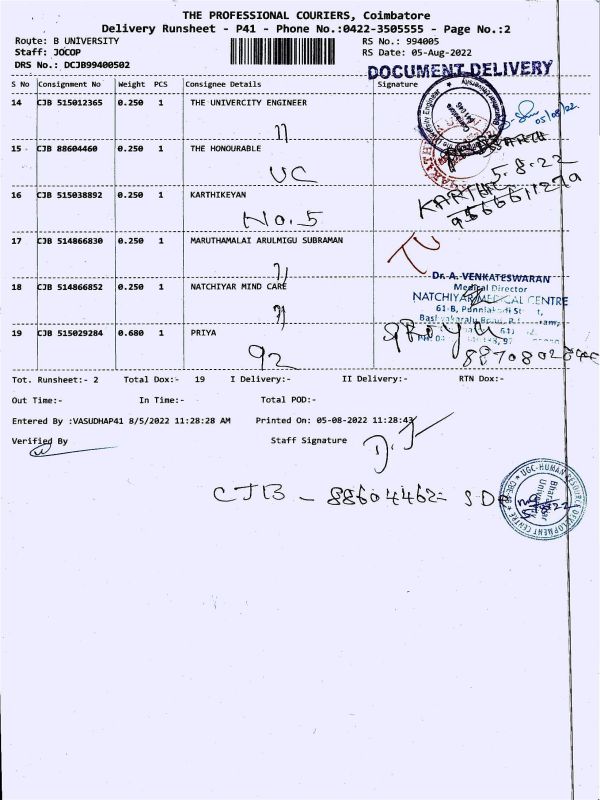 THE PROFESSIONAL COURIERS, Coimbatore
Delivery Runsheet - P41 - Phone No.:0422-3505555 - Page No.:2
Route: B UNIVERSITY RS No.: 994005
Staff: JOCOP RS Date: 05-Aug-2022
DRS No.: DCJB99400502
DOCUMENT DELIVERY
S No Consignment No Weight PCS Consignee Details Signature
14 CJB 515012365 0.250 1 THE UNIVERCITY ENGINEER
05/08/22
15 CJB 88604460 0.250 1 THE HONOURABLE
UC
5.8.22
16 CJB 515038892 0.250 1 KARTHIKEYAN
No.5
17 CJB 514866830 0.250 1 MARUTHAMALAI ARULMIGU SUBRAMAN
Dr. A. VENKATESWARAN
Medical Director
18 CJB 514866852 0.250 1 NATCHIYAR MIND CARE
NATCHIYAR MEDICAL CENTRE
61-B,
19 CJB 515029284 0.680 1 PRIYA
92
Tot. Runsheet:- 2 Total Dox:- 19 I Delivery:- II Delivery:- RTN Dox:-
Out Time:- In Time:- Total POD:-
Entered By :VASUDHAP41 8/5/2022 11:28:28 AM Printed On: 05-08-2022 11:28:43
Verified By Staff Signature
CJB - 88604462
UGC-HUMAN RESOURCE DEVELOPMENT CENTRE